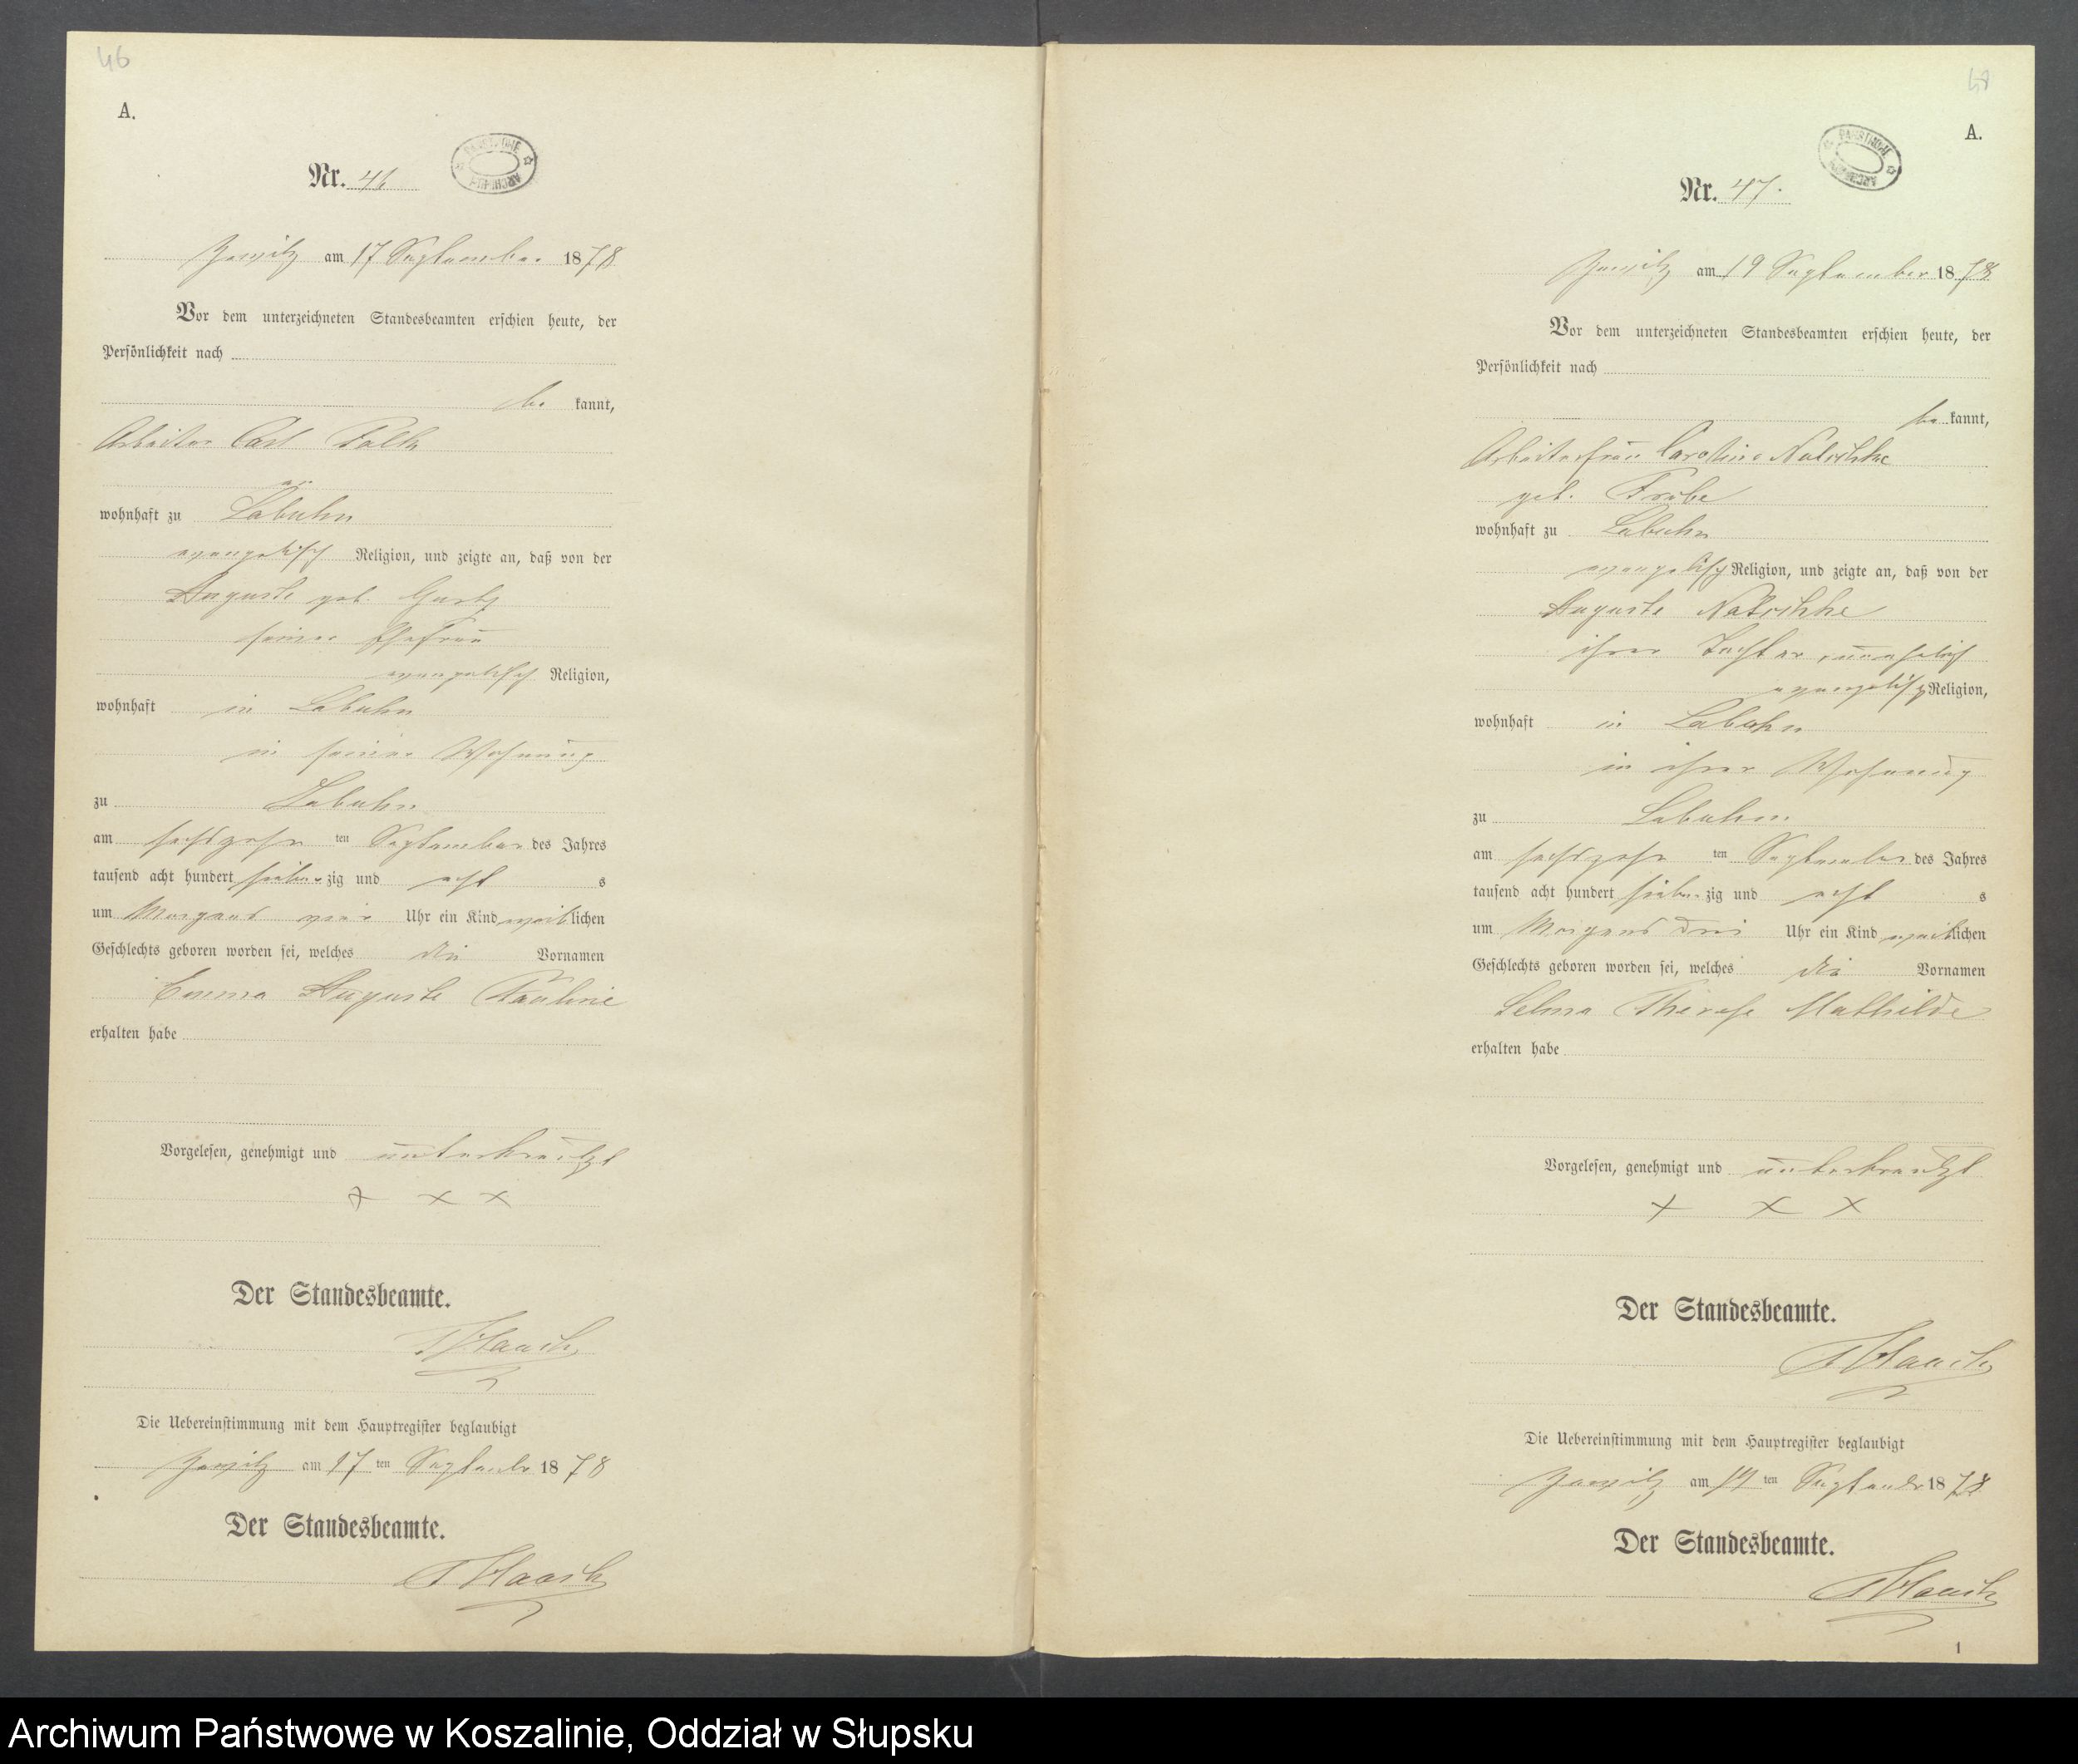 46
A.
Nr. 46
am 17 September 1878
Vor dem unterzeichneten Standesbeamten erschien heute, der
Persönlichkeit nach
be kannt,
Arbeiter Carl Falk
wohnhaft zu Labuhn
evangelisch Religion, und zeigte an, daß von der
Auguste geb.
seiner Ehefrau
evangelisch Religion,
wohnhaft in Labuhn
in seiner Wohnung
zu Labuhn
am sechszehn ten September des Jahres
tausend acht hundert sieben zig und acht s
um Morgens vier Uhr ein Kind weiblichen
Geschlechts geboren worden sei, welches die Vornamen
Emma Auguste Pauline
erhalten habe
Vorgelesen, genehmigt und unterkreuzt
+ × ×
Der Standesbeamte.
Die Uebereinstimmung mit dem Hauptregister beglaubigt
am 17 ten September 1878
Der Standesbeamte.
A.
Nr. 47.
am 19 September 1878
Vor dem unterzeichneten Standesbeamten erschien heute, der
Persönlichkeit nach
be kannt,
Arbeiterfrau Caroline Natschke
geb.
wohnhaft zu Labuhn
evangelisch Religion, und zeigte an, daß von der
Auguste Natschke
ihrer Tochter, unehelich
evangelisch Religion,
wohnhaft in Labuhn
in ihrer Wohnung
zu Labuhn
am sechszehn ten September des Jahres
tausend acht hundert sieben zig und acht s
um Morgens drei Uhr ein Kind weiblichen
Geschlechts geboren worden sei, welches die Vornamen
Selma Therese Mathilde
erhalten habe
Vorgelesen, genehmigt und unterkreuzt
+ × ×
Der Standesbeamte.
Die Uebereinstimmung mit dem Hauptregister beglaubigt
am 19 ten September 1878
Der Standesbeamte.
1
Archiwum Państwowe w Koszalinie, Oddział w Słupsku